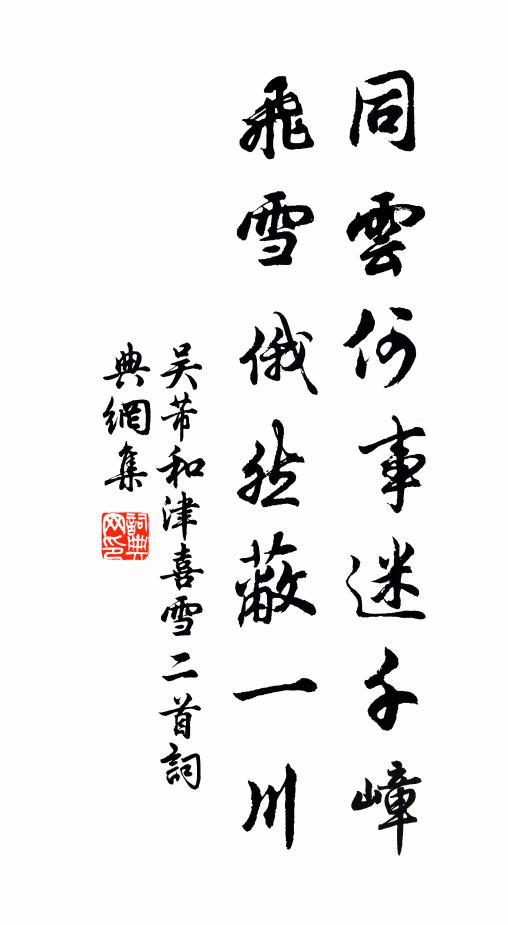 同雲何事迷千嶂
飛雪俄然蔽一川
吴芾和津喜雪二首詞
典網集
詞典
网印